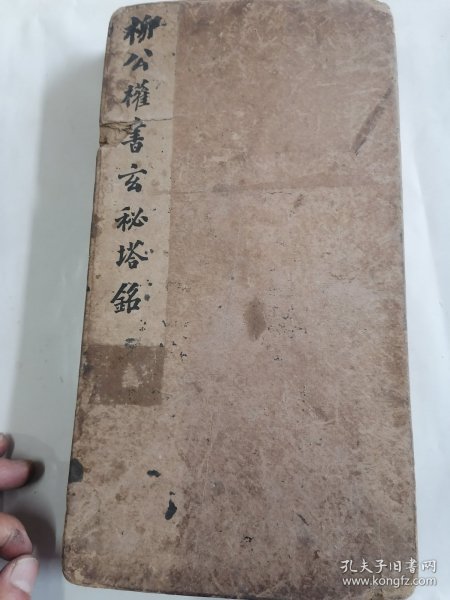 柳公權書玄秘塔銘
孔夫子旧书网
www.kongfz.com